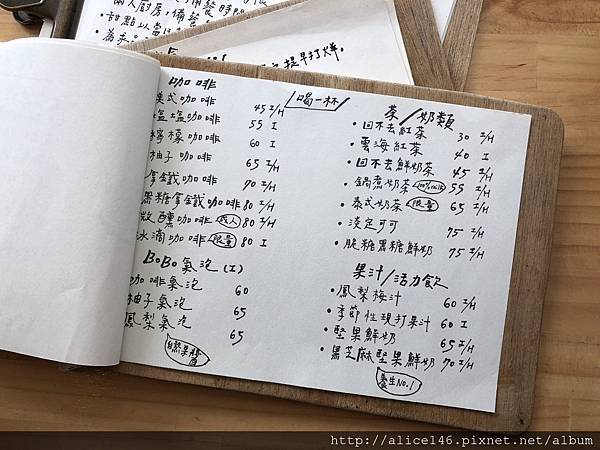 甜點以當
提早打烊.
喝一杯
咖啡
美式咖啡 45 I/H
鹽咖啡 55 I
檸檬咖啡 60 I
柚子咖啡 65 I/H
拿鐵咖啡 70 I/H
黑糖拿鐵咖啡 80 I/H
微醺咖啡 成人 80 I/H
冰滴咖啡 限量 80 I
BoBo氣泡 (I)
咖啡氣泡 60
柚子氣泡 65
鳳梨氣泡 65
自然果醬
茶/奶類
・回不去紅茶 30 I/H
・雲海紅茶 40 I
・回不去鮮奶茶 45 I/H
・鍋煮奶茶 100%milk 55 I/H
・泰式奶茶 限量 65 I/H
・淡定可可 75 I/H
・脫糖黑糖鮮奶 75 I/H
果汁/活力飲
・鳳梨梅汁 60 I/H
・季節性現打果汁 60 I
・堅果鮮奶 65 I/H
・黑芝麻堅果鮮奶 70 I/H
養生NO.1
http://alice146.pixnet.net/album